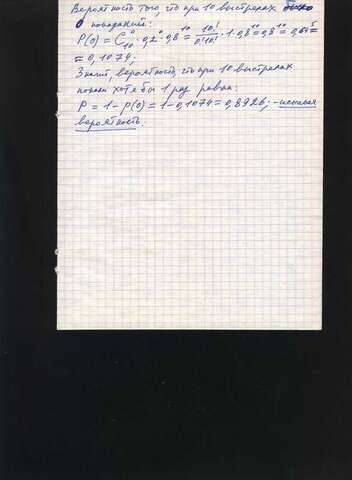 Вероятность того, что при 10 выстрелах было
0 попаданий:
P(0) = C₁₀⁰ · 0,2⁰ · 0,8¹⁰ = 10!/0!10! · 1 · 0,8¹⁰ = 0,8¹⁰ = 0,64⁵ =
= 0,1074;
Значит, вероятность, что при 10 выстрелах
попали хотя бы 1 раз равна:
P = 1 - P(0) = 1 - 0,1074 = 0,8926; - искомая
вероятность.